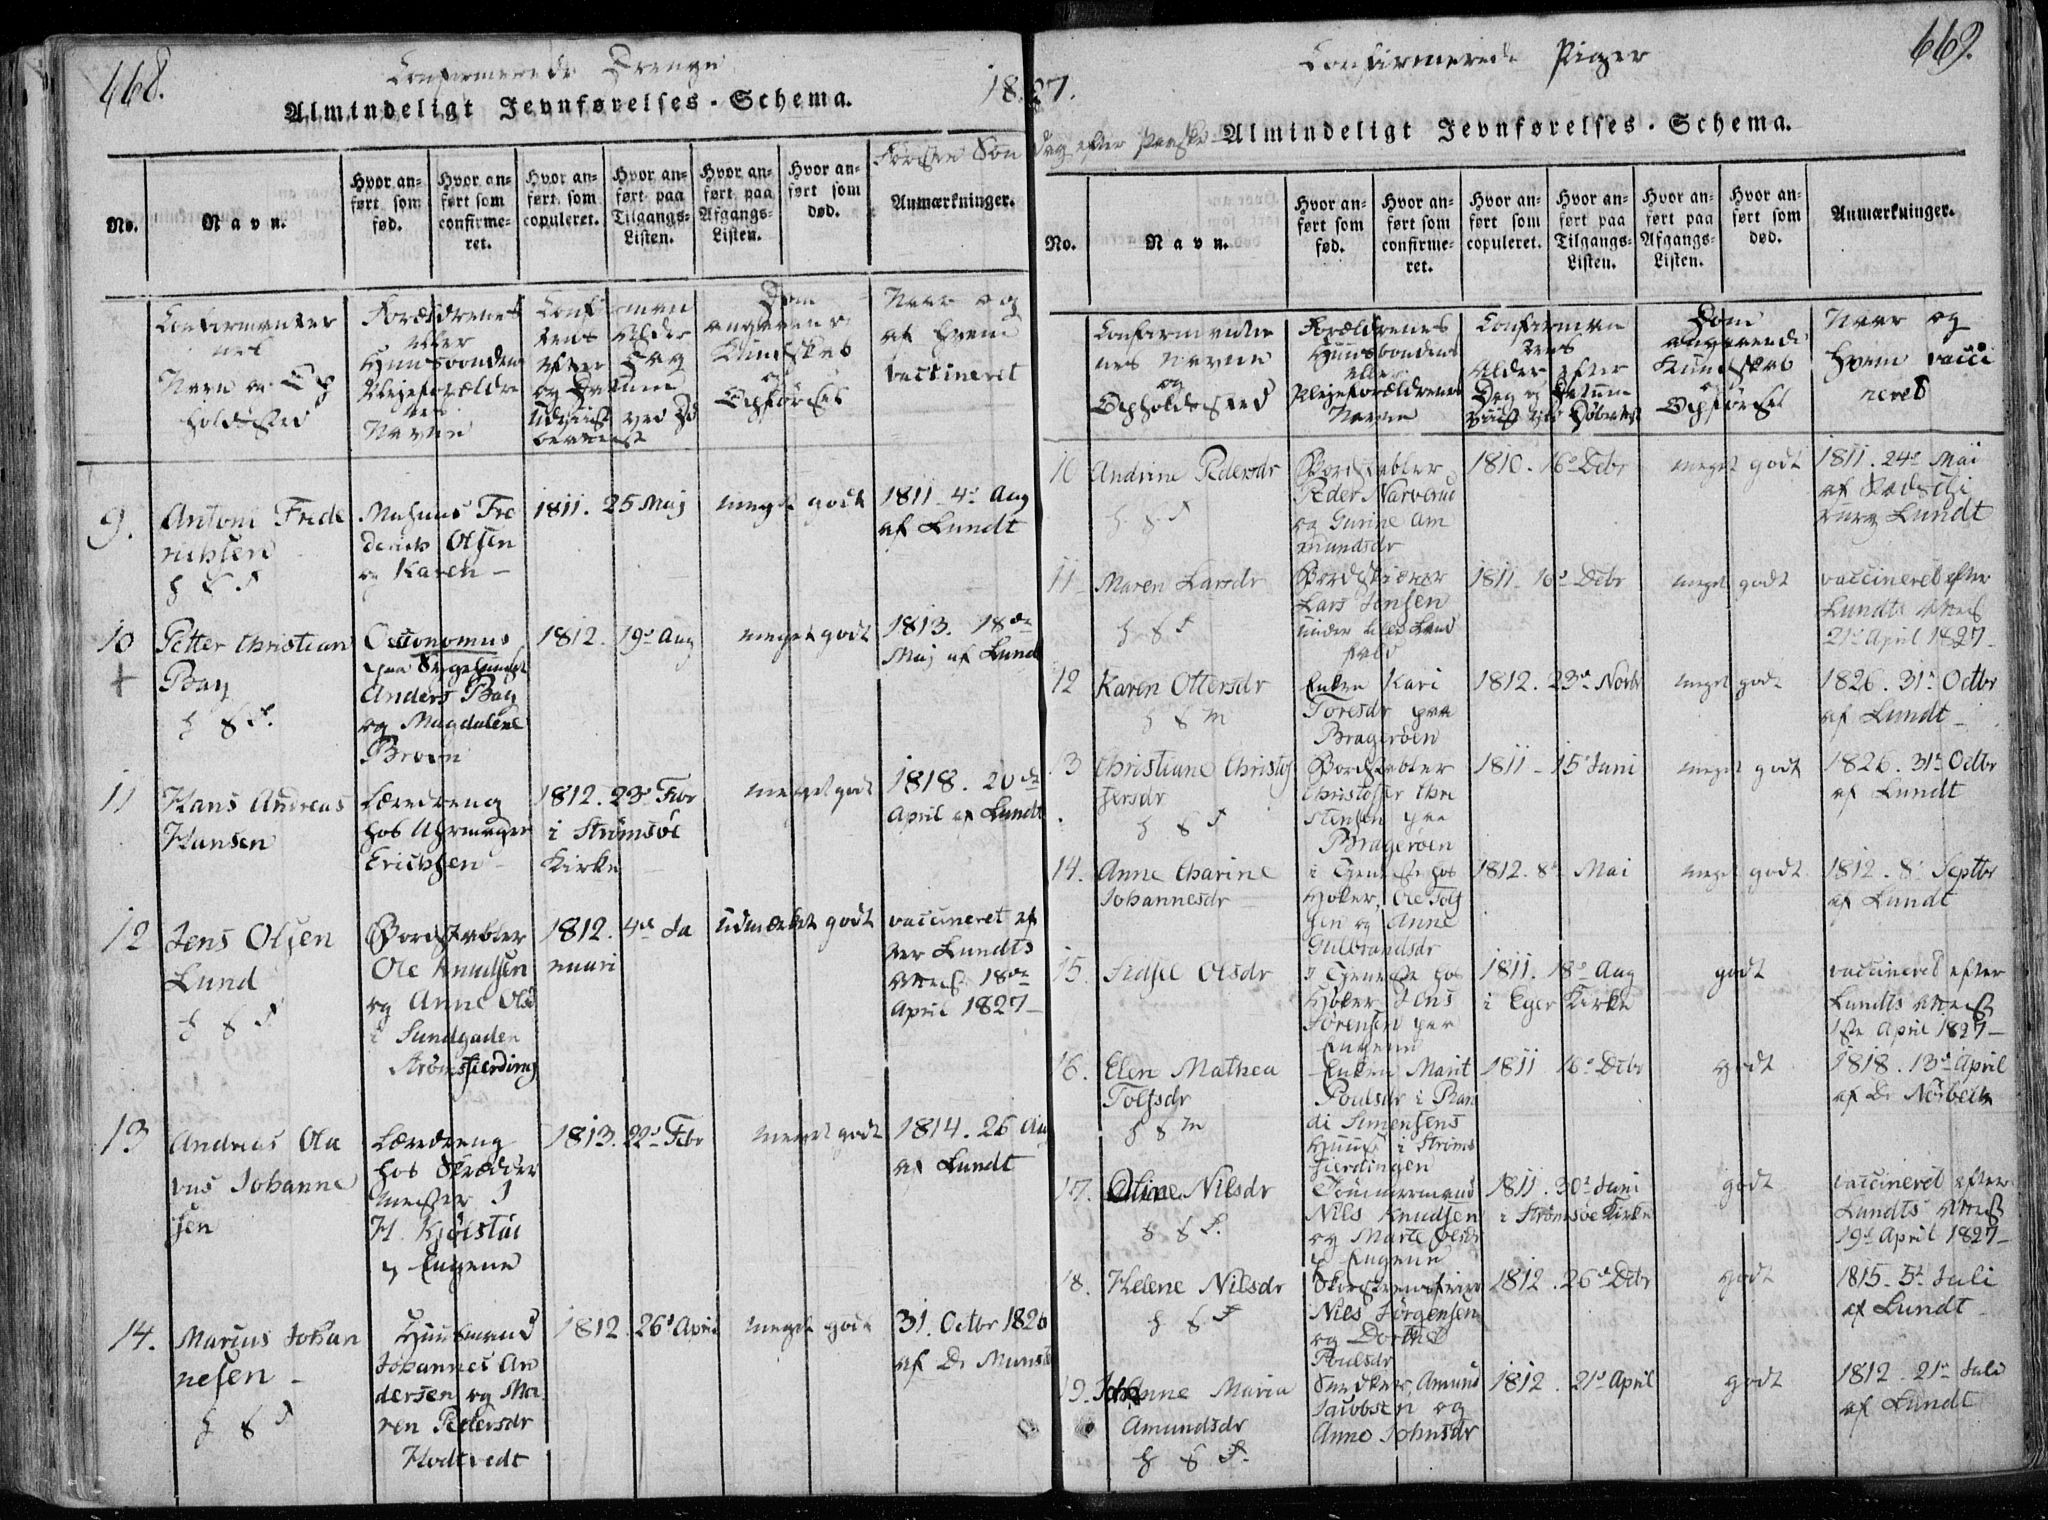 468.
Confirmerede Drenge
1827.
Almindeligt Jevnførelses-Schema.
Første Søn
No.
Navn.
Hvor anført som fød.
Hvor anført som confirmeret.
Hvor anført som copuleret.
Hvor anført paa Tilgangs-Listen.
Hvor anført paa Afgangs-Listen.
Hvor anført som død.
Anmærkninger.
Confirmanter
nes
Navn og Op
holdsted
Forældrenes
eller
Huusbondens
Pleieforældre
nes
Navne
Confirman
tens Alder
efter Dag
og Datum
Udviist ved Dø
beattest
Dom
angaaende
Kundskab
og
Opførsel
Naar og
af hvem
vaccineret
9.
Antoni Frede
richsen
h S F
Mathias Fre
derich Olsen
og Karen
1811. 25 Maj
meget godt
1811 4de Aug
af Lundt
10
+
Petter Christian
Bay
h S F.
Oeconomus
paa Sygehuuset
Anders Bay
og Magdalene
Bruun
1812. 19de Aug
meget godt
1813. 18de
Maj af Lundt
11
Hans Andreas
Hansen
Læredreng
hos Uhrmager
Erichsen
1812. 23de Febr
i Strømsøe
Kirke
meget godt
1818. 20de
April af Lundt
12
Jens Olsen
Lund
h S F
Bordstabler
Ole Knudsen
og Anne Olsd
i Sundgaden
Strømsfierding
1812. 4de Ja
nuari
udmærket godt
vaccineret ef
ter Lundts
Attest 18de
April 1827
13
Andreas Ola
vus Johanne
sen
Læredreng
hos Skrædder
mester J
H. Kjølstad
p Engene
1813. 22de Febr
meget godt
1814. 26 Aug
af Lundt
14.
Marius Johan
nesen
h S F
Huusmand
Johannes An
dersen og Ma
ren Pedersdr
Hodtvedt
1812. 26de April
meget godt
31. Octbr 1826
af Dr Munster
669.
Confirmerede Piger
dag efter Paaske
Almindeligt Jevnførelses-Schema.
No.
Navn.
Hvor anført som fød.
Hvor anført som confirmeret.
Hvor anført som copuleret.
Hvor anført paa Tilgangs-Listen.
Hvor anført paa Afgangs-Listen.
Hvor anført som død.
Anmærkninger.
Confirmanter
nes Navne
og
Opholdssted
Forældrenes
Huusbondens
eller
Pleieforældrenes
Navne
Confirman
tens
Alder efter
Dag og Datum
Dom
angaaende
Kundskab
og
Opførsel
Naar og
hvem vacci
neret
10
Andrine Pedersdr
h S F
Bordstabler
Peder Narverud
og Gurine Am
mundsdr
1810. 16de Debr
meget godt
1811. 24de Mai
af
Lundt
11
Maren Larsdr
h S F
Bordskierer
Lars Jensen
under Lille Land
fald
1811. 16de Debr
meget godt
vaccineret efter
Lundts Attest
21de April 1827
12
Karen Ottersdr
h S m
Enken Kari
Toresdr paa
Bragerøen
1812. 23de Novbr
meget godt
1826. 31te Octbr
af Lundt
13
Christiane Christof
fersdr
h S F
Bordstabler
Christoffer Chri
stensen paa
Bragerøen
1811 15de Juni
meget godt
1826. 31te Octbr
af Lundt
14.
Anne Charine
Johannesdr
i Tjeneste hos
Høker Ole Tolf
sen og Anne
Gulbrandsdr
1812. 8de Mai
meget godt
1812. 8de Septbr
af Lundt
15.
Sidsel Olsdr
I Tjeneste hos
Høker Jens
Sørensen paa
Engene
1811. 18de Aug
i Eger Kirke
godt
vaccineret efter
Lundts Attest
1ste April 1827
16.
Elen Mathea
Tolfsdr
h S m
Enken Marit
Poulsdr i Ran
di Simensens
Huus i Strøms
fierdingen
1811 16de Debr
godt
1818. 13de April
af Dr Nørbech
17.
Oline Nilsdr
h S F.
Tømmermand
Nils Knudsen
og Marte Olsdr
p Engene
1811. 30te Juni
i Strømsøe Kirke
godt
vaccineret efter
Lundts Attest
19de April 1827
18.
Helene Nilsdr
h S F
Skorstensfeier
Nils Jørgensen
og Dorthe
Poulsdr
1812. 26de Debr
godt
1815. 5te Juli
af Lundt
19.
Johanne Maria
Amundsdr
h S F.
Snedker Amund
Jacobsen og
Anne Johnsdr
1812. 21de April
godt
1812. 21de Juli
af Lundt